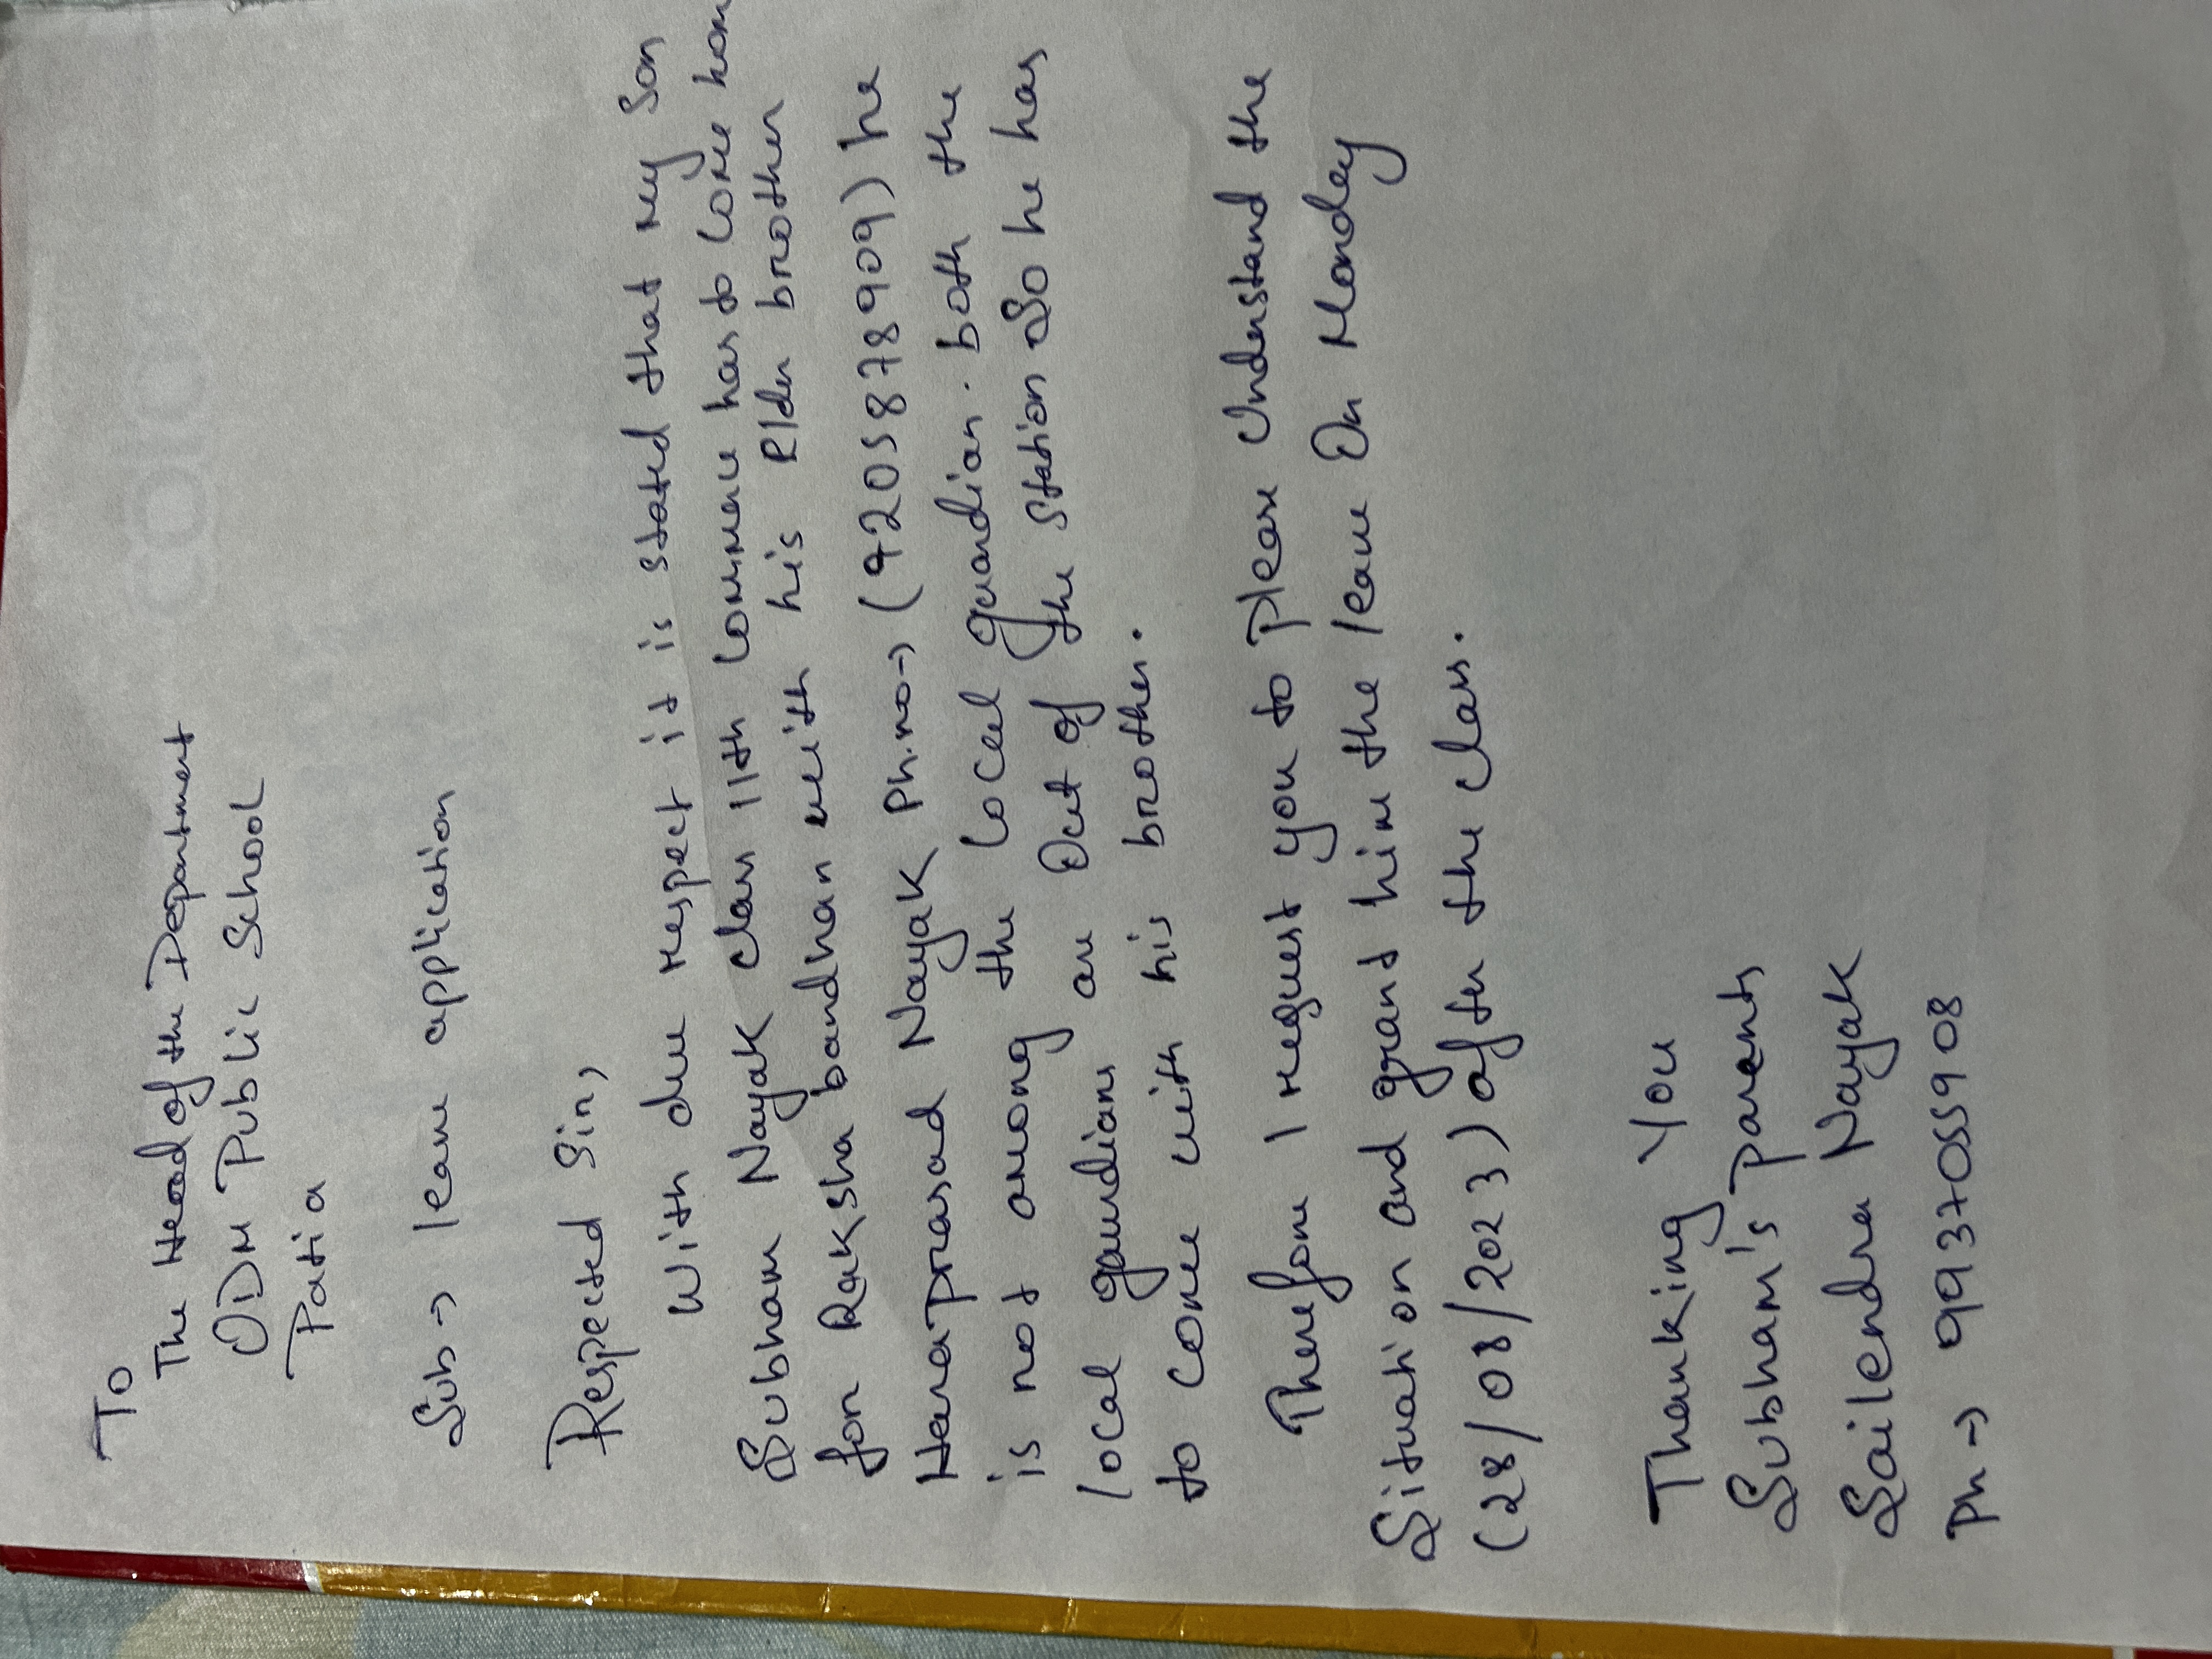 To
The Head of the Department
ODM Public School
Patia
Sub → leave application
Respected Sir,
With due respect it is stated that my Son
Subham Nayak class 11th commerce has to come hom
for Raksha bandhan with his Elder brother
Haraprasad Nayak Ph.no→ (9205878909) he
is not among the local guardian. both the
local gaurdians are Out of the station So he has
to come with his brother.
Therefore I request you to please Understand the
Situation and grant him the leave On Monday
(28/08/2023) after the class.
Thanking You
Subham's parents
Sailendra Nayak
Ph → 9937055908